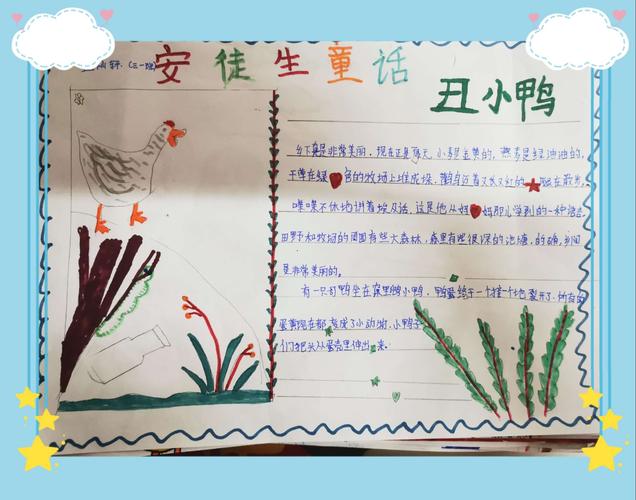 雨轩.(三一班)
安徒生童话
丑小鸭
乡下真是非常美丽,现在正是夏天,小麦是金黄的,燕麦是绿油油的,
干草在绿色的牧场上堆成垛,鹳鸟迈着又长又红的腿在散步,
喋喋不休地讲着埃及话,这是他从妈妈那儿学到的一种语言
田野和牧场的周围有些大森林,森里有些很深的池塘,的确,乡间
是非常美丽的。
有一只母鸭坐在窠里
一个地裂开了.所有的
蛋黄现在都变成了小动物.小鸭子
们把头从蛋壳里伸出来.